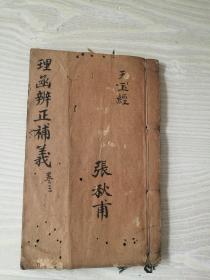 天玉經
張秋甫
理函辨正補義 卷三